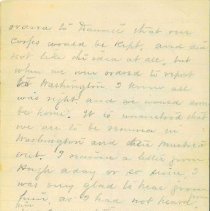 that our
Corps would be kept, and did
not like the idea at all, but
when we were ordered to report
to Washington I knew all
was right and we would soon
be home. It is understood that
we are to be reviewed in
Washington and then Mustered
out. I received a letter from
Hugh a day or so since, I
was very glad to hear from
him, as I had not heard